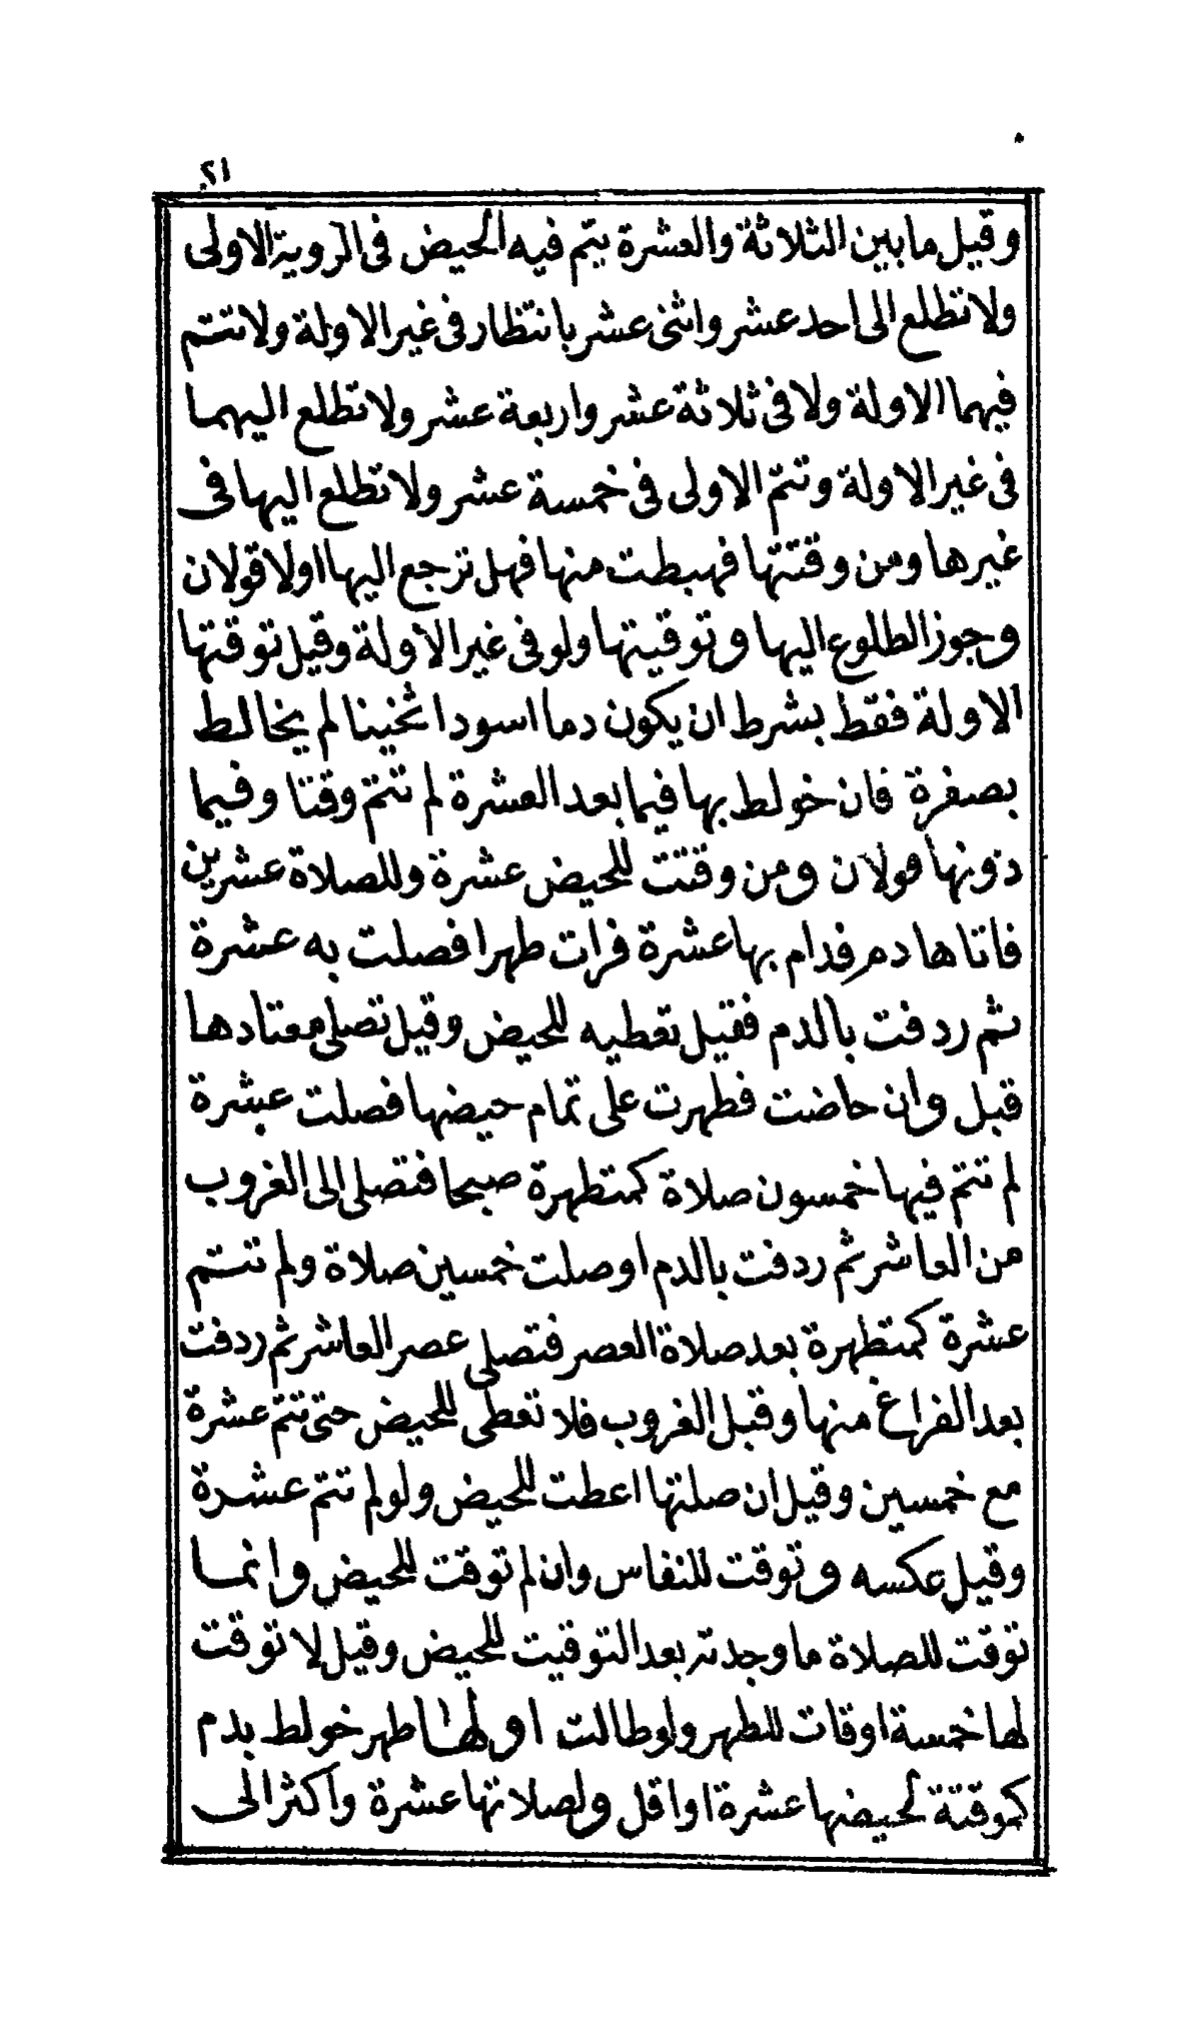 ٢١
وقيل ما بين الثلاثة والعشرة يتم فيه الحيض فى الروية الاولى
ولا تطلع الى احد عشر واثنى عشر بانتظار فى غير الاولة ولا تتم
فيهما الاولة ولا فى ثلاثة عشر واربعة عشر ولا تطلع اليهما
فى غير الاولة وتتم الاولى فى خمسة عشر ولا تطلع اليها فى
غيرها ومن وقتتها فهبطت منها فهل ترجع اليها اولا قولان
وجوز الطلوع اليها وتوقيتها ولو فى غير الاولة وقيل توقتها
الاولة فقط بشرط ان يكون دما اسودا ثخينا لم يخالط
بصفرة فان خولط بها فيما بعد العشرة لم تتم وقتا وفيما
دونها قولان ومن وقتت للحيض عشرة وللصلاة عشرين
فاتاها دم فدام بها عشرة فرات طهرا فصلت به عشرة
ثم ردفت بالدم فقيل تعطيه للحيض وقيل تصلى معتادها
قبل وان حاضت فطهرت على تمام حيضها فصلت عشرة
لم تتم فيها خمسون صلاة كمتطهرة صبحا فتصلى الى الغروب
من العاشر ثم ردفت بالدم اوصلت خمسين صلاة ولم تتم
عشرة كمتطهرة بعد صلاة العصر فتصلى عصر العاشر ثم ردفت
بعد الفراغ منها وقبل الغروب فلا تعطى للحيض حتى تتم عشرة
مع خمسين وقيل ان صلتها اعطت للحيض ولو لم تتم عشرة
وقيل عكسه وتوقت للنفاس وان لم توقت للحيض وانما
توقت للصلاة ما وجدته بعد التوقيت للحيض وقيل لا توقت
لها خمسة اوقات للطهر ولو طالت اولها طهر خولط بدم
كموقتة لحيضها عشرة او اقل ولصلاتها عشرة واكثر الى